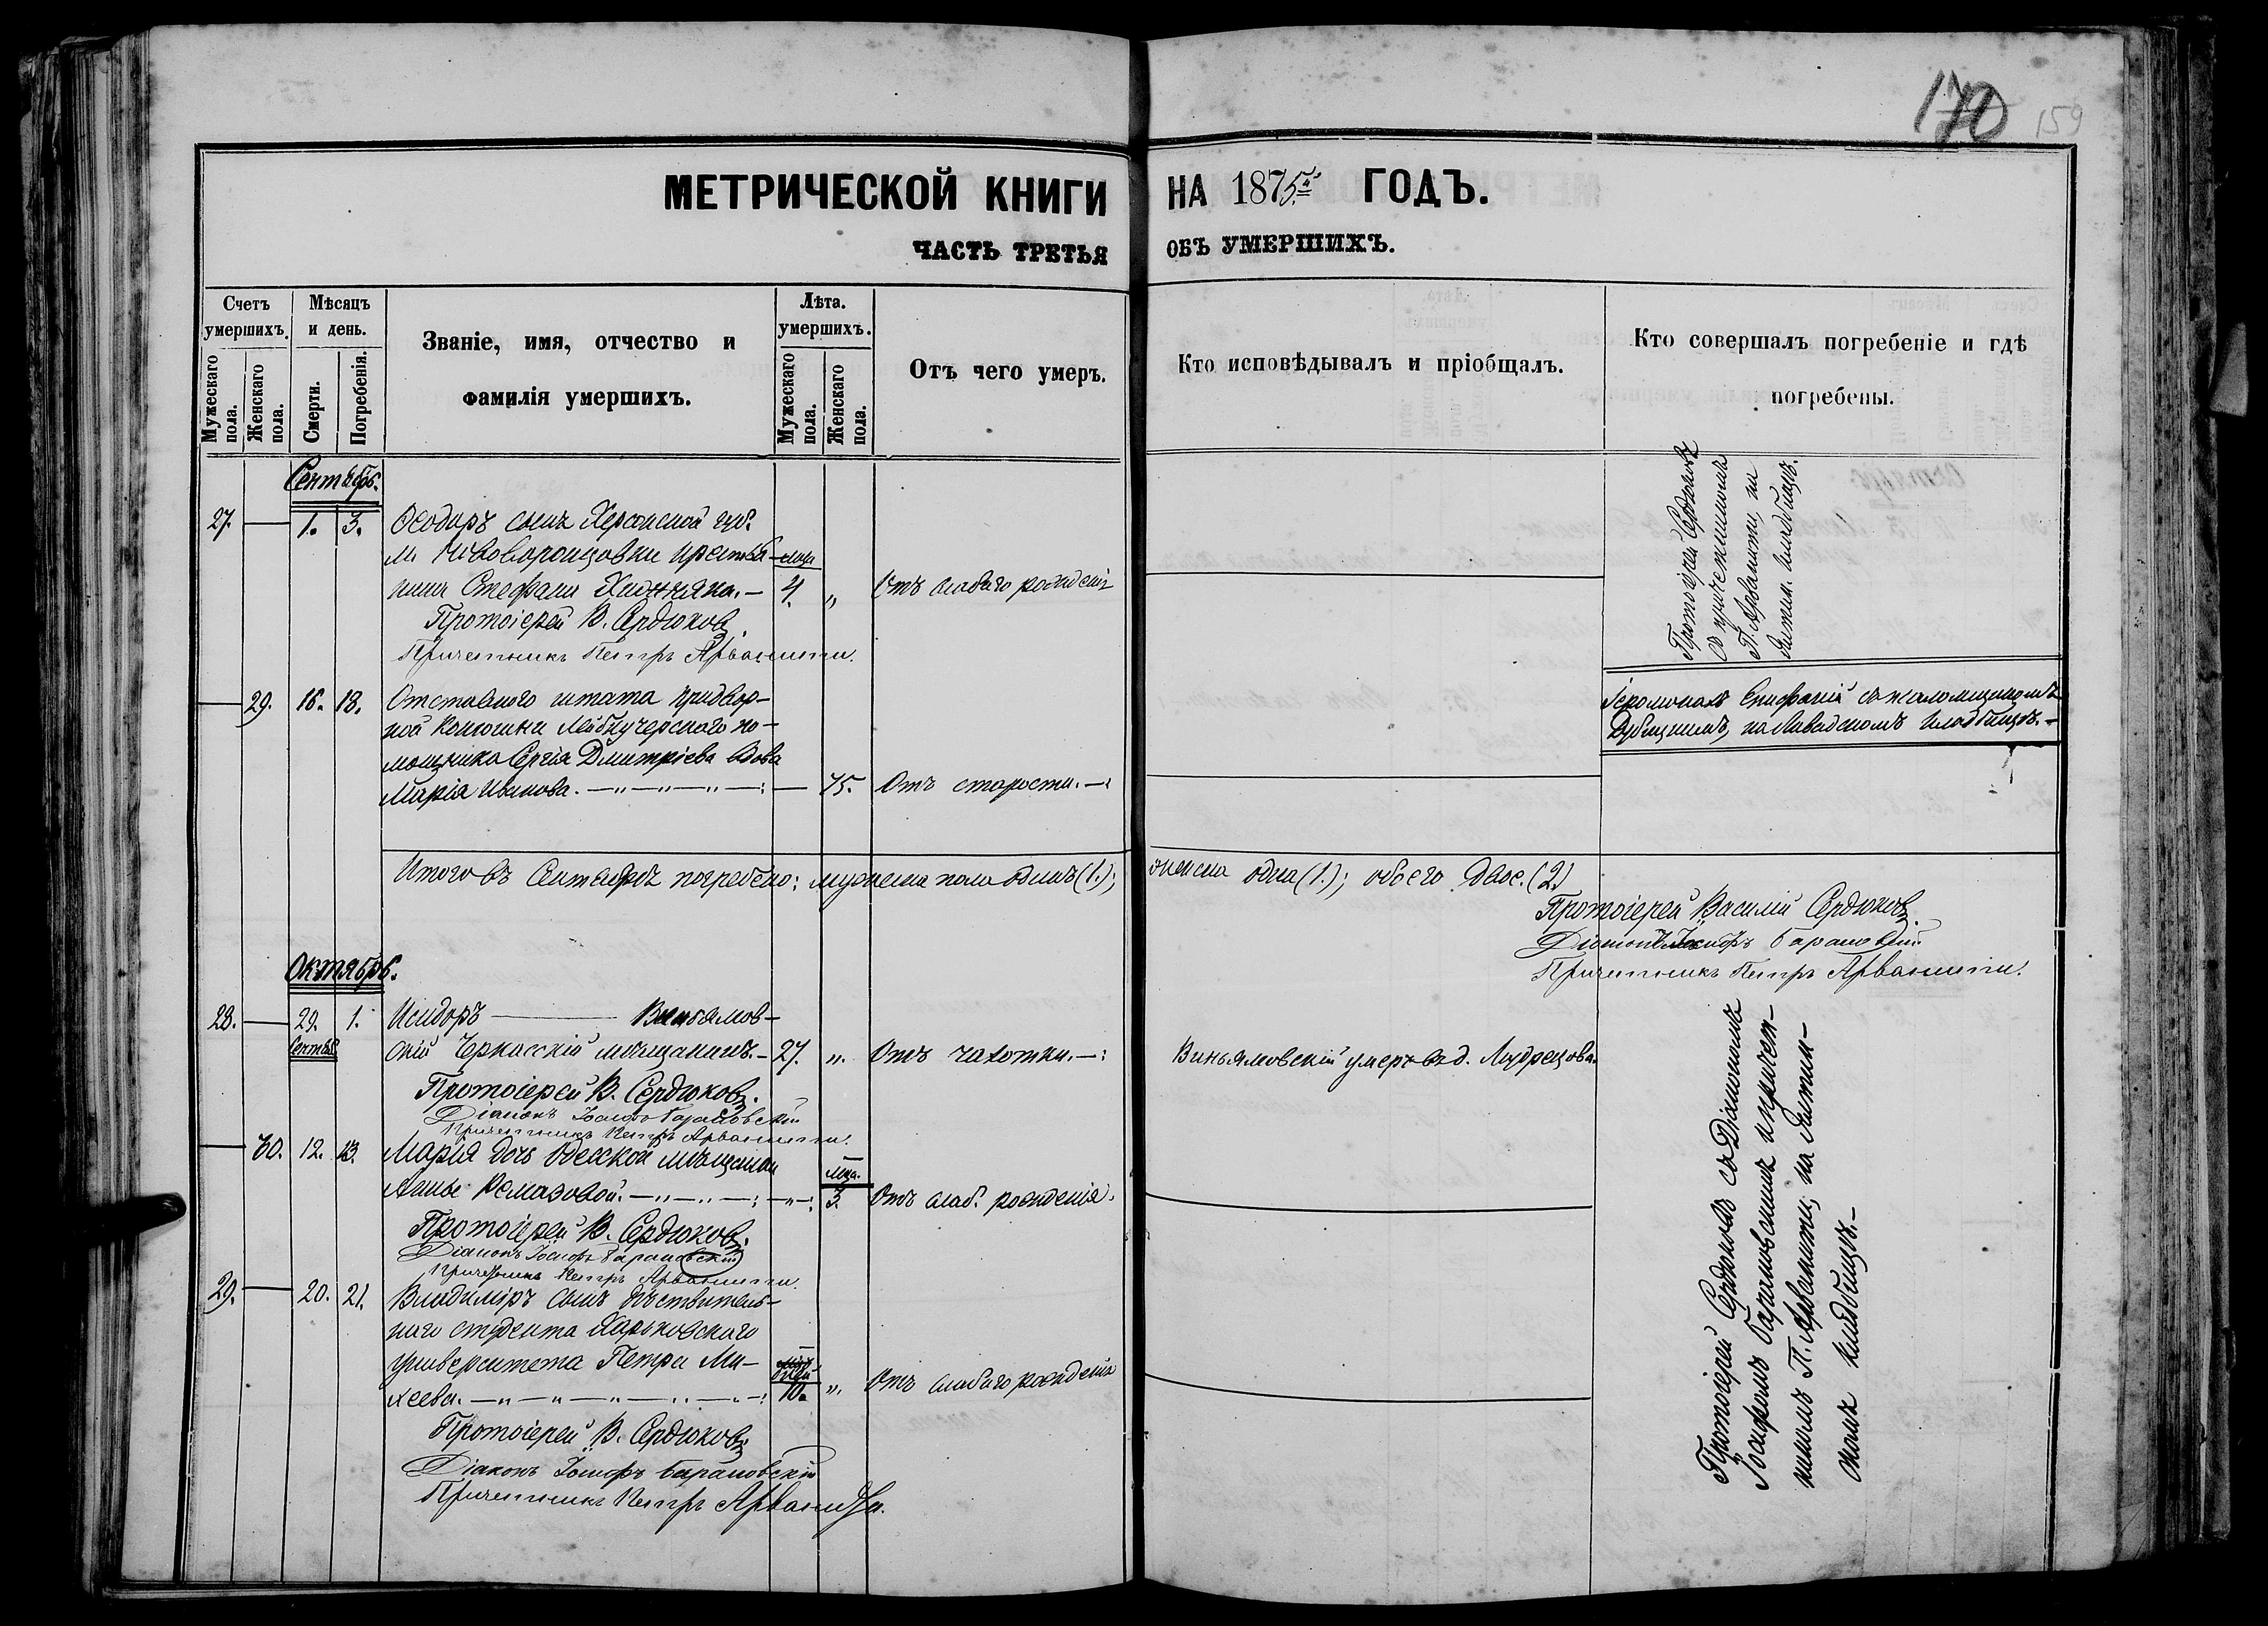 170 159
МЕТРИЧЕСКОЙ КНИГИ НА 1875й ГОДЪ.
ЧАСТЬ ТРЕТЬЯ ОБЪ УМЕРШИХЪ.
Счетъ умершихъ.
Мужескаго пола.
Женскаго пола.
Мѣсяцъ и день.
Смерти.
Погребенія.
Званіе, имя, отчество и
фамилія умершихъ.
Лѣта умершихъ.
Мужескаго пола.
Женскаго пола.
Отъ чего умеръ.
Кто исповѣдывалъ и пріобщалъ.
Кто совершалъ погребеніе и гдѣ
погребены.
Сентябрь.
27. — 1. 3. Ѳеодоръ сынъ Херсонской губ.
м. Нововоронцовки крестья-
нина Стефана — 4. „ Отъ слабаго рожденія
Протоіерей В. Сердюковъ.
Причетникъ Петръ Арванити.
Протоіерей Сердюковъ
съ причетникомъ
П. Арванити, на
кладбищѣ.
— 29. 16. 18. Отставного штата придвор-
ной конюшни Лейбкучерского по-
мощника Сергія Дмитріева вдова
Марія Иванова. — „ — „ — „ — : — 75. Отъ старости. — :
Іеромонахъ Епифаній съ
на Ливадскомъ кладбищѣ. —
Итого въ Сентябрѣ погребено: мужеска пола одинъ (1.); женска одна (1.); обоего двое. (2.)
Протоіерей Василій Сердюковъ.
Діаконъ Іосифъ Барановскій
Причетникъ Петръ Арванити.
Октябрь.
28. — 29. 1. Исидоръ — Виньямов-
Сентяб. скій Черкасскій мѣщанинъ. — 27. „ Отъ чахотки. — :
Виньямовскій умеръ въ д. Мудрецова.
Протоіерей В. Сердюковъ.
Діаконъ Іосифъ Барановскій
Причетникъ Петръ Арванити.
— 30. 12. 13. Марія дочь Одесской мѣщанки
мца.
Анны — „ — „ — : — „ — : 3. Отъ слаб. рожденія.
Протоіерей В. Сердюковъ.
Діаконъ Іосифъ Барановскій
Причетникъ Петръ Арванити.
29. — 20. 21. Владиміръ сынъ дѣствитель-
наго студента Харьковскаго
университета Петра Ми-
дней
хеева. — „ — „ — „ — „ — : 10. „ Отъ слабаго рожденія
Протоіерей В. Сердюковъ
Діаконъ Іосифъ Барановскій
Причетникъ Петръ Арванити.
Протоіерей Сердюковъ съ Діакономъ
Іосифомъ Барановскимъ и причет-
никомъ П. Арванити, на
кладбищѣ. —